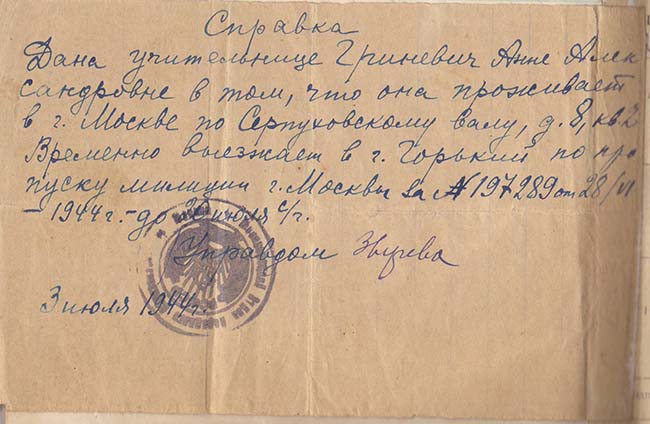 Справка
Дана учительнице Гриневич Анне Алек
сандровне в том, что она проживает
в г. Москве по Серпуховскому валу, д. 8, кв. 2
Временно выезжает в г. Горький по про
пуску милиции г. Москвы за № 197289 от 28/VI
– 1944 г. – до июля с/г.
Управдом
3 июля 1944 г.